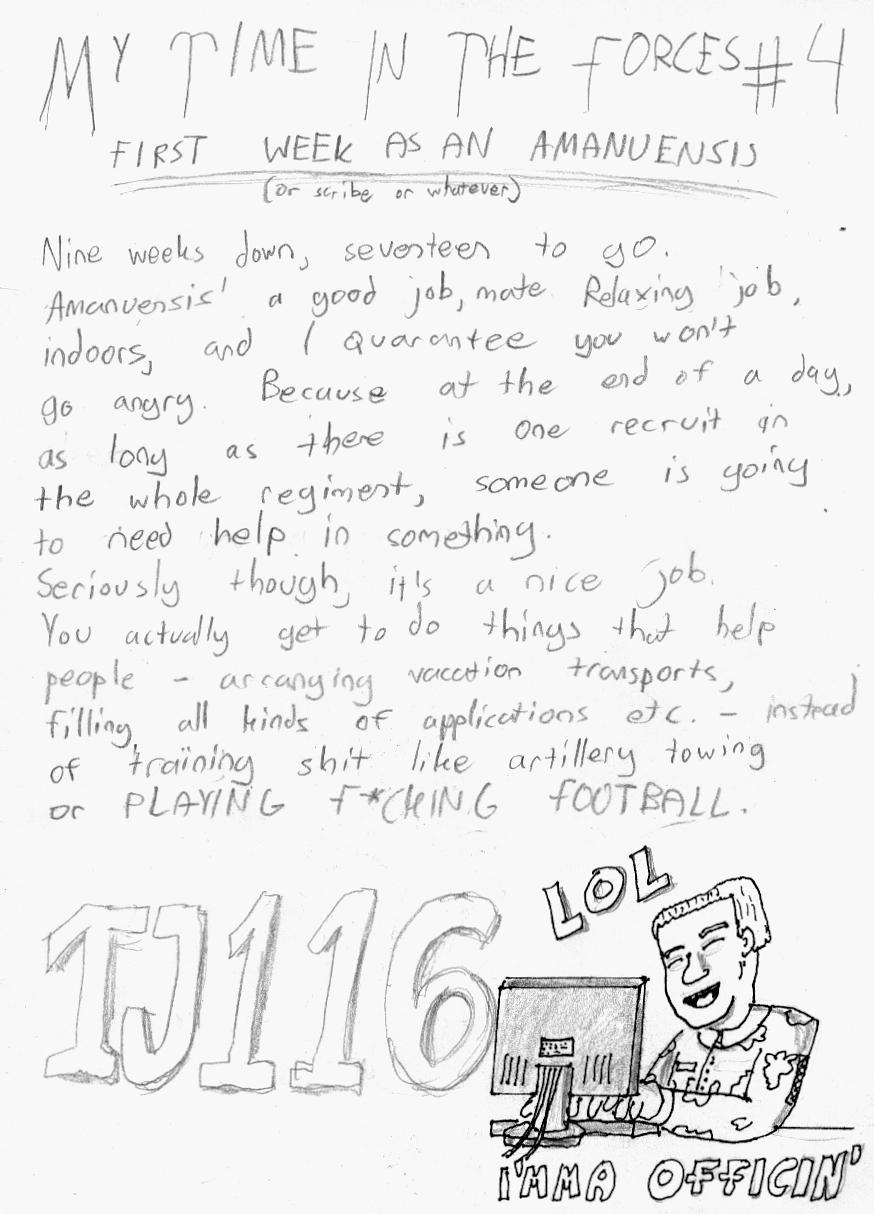 MY TIME IN THE FORCES #4
FIRST WEEK AS AN AMANUENSIS
(or scribe or whatever)
Nine weeks down, seventeen to go.
Amanuensis' a good job, mate. Relaxing job,
indoors, and I quarantee you won't
go angry. Because at the end of a day,
as long as there is one recruit in
the whole regiment, someone is going
to need help in something.
Seriously though, it's a nice job.
You actually get to do things that help
people - arranging vacation transports,
filling all kinds of applications etc. - instead
of training shit like artillery towing
or PLAYING F*CKING FOOTBALL.
TJ116
LOL
I'MMA OFFICIN'